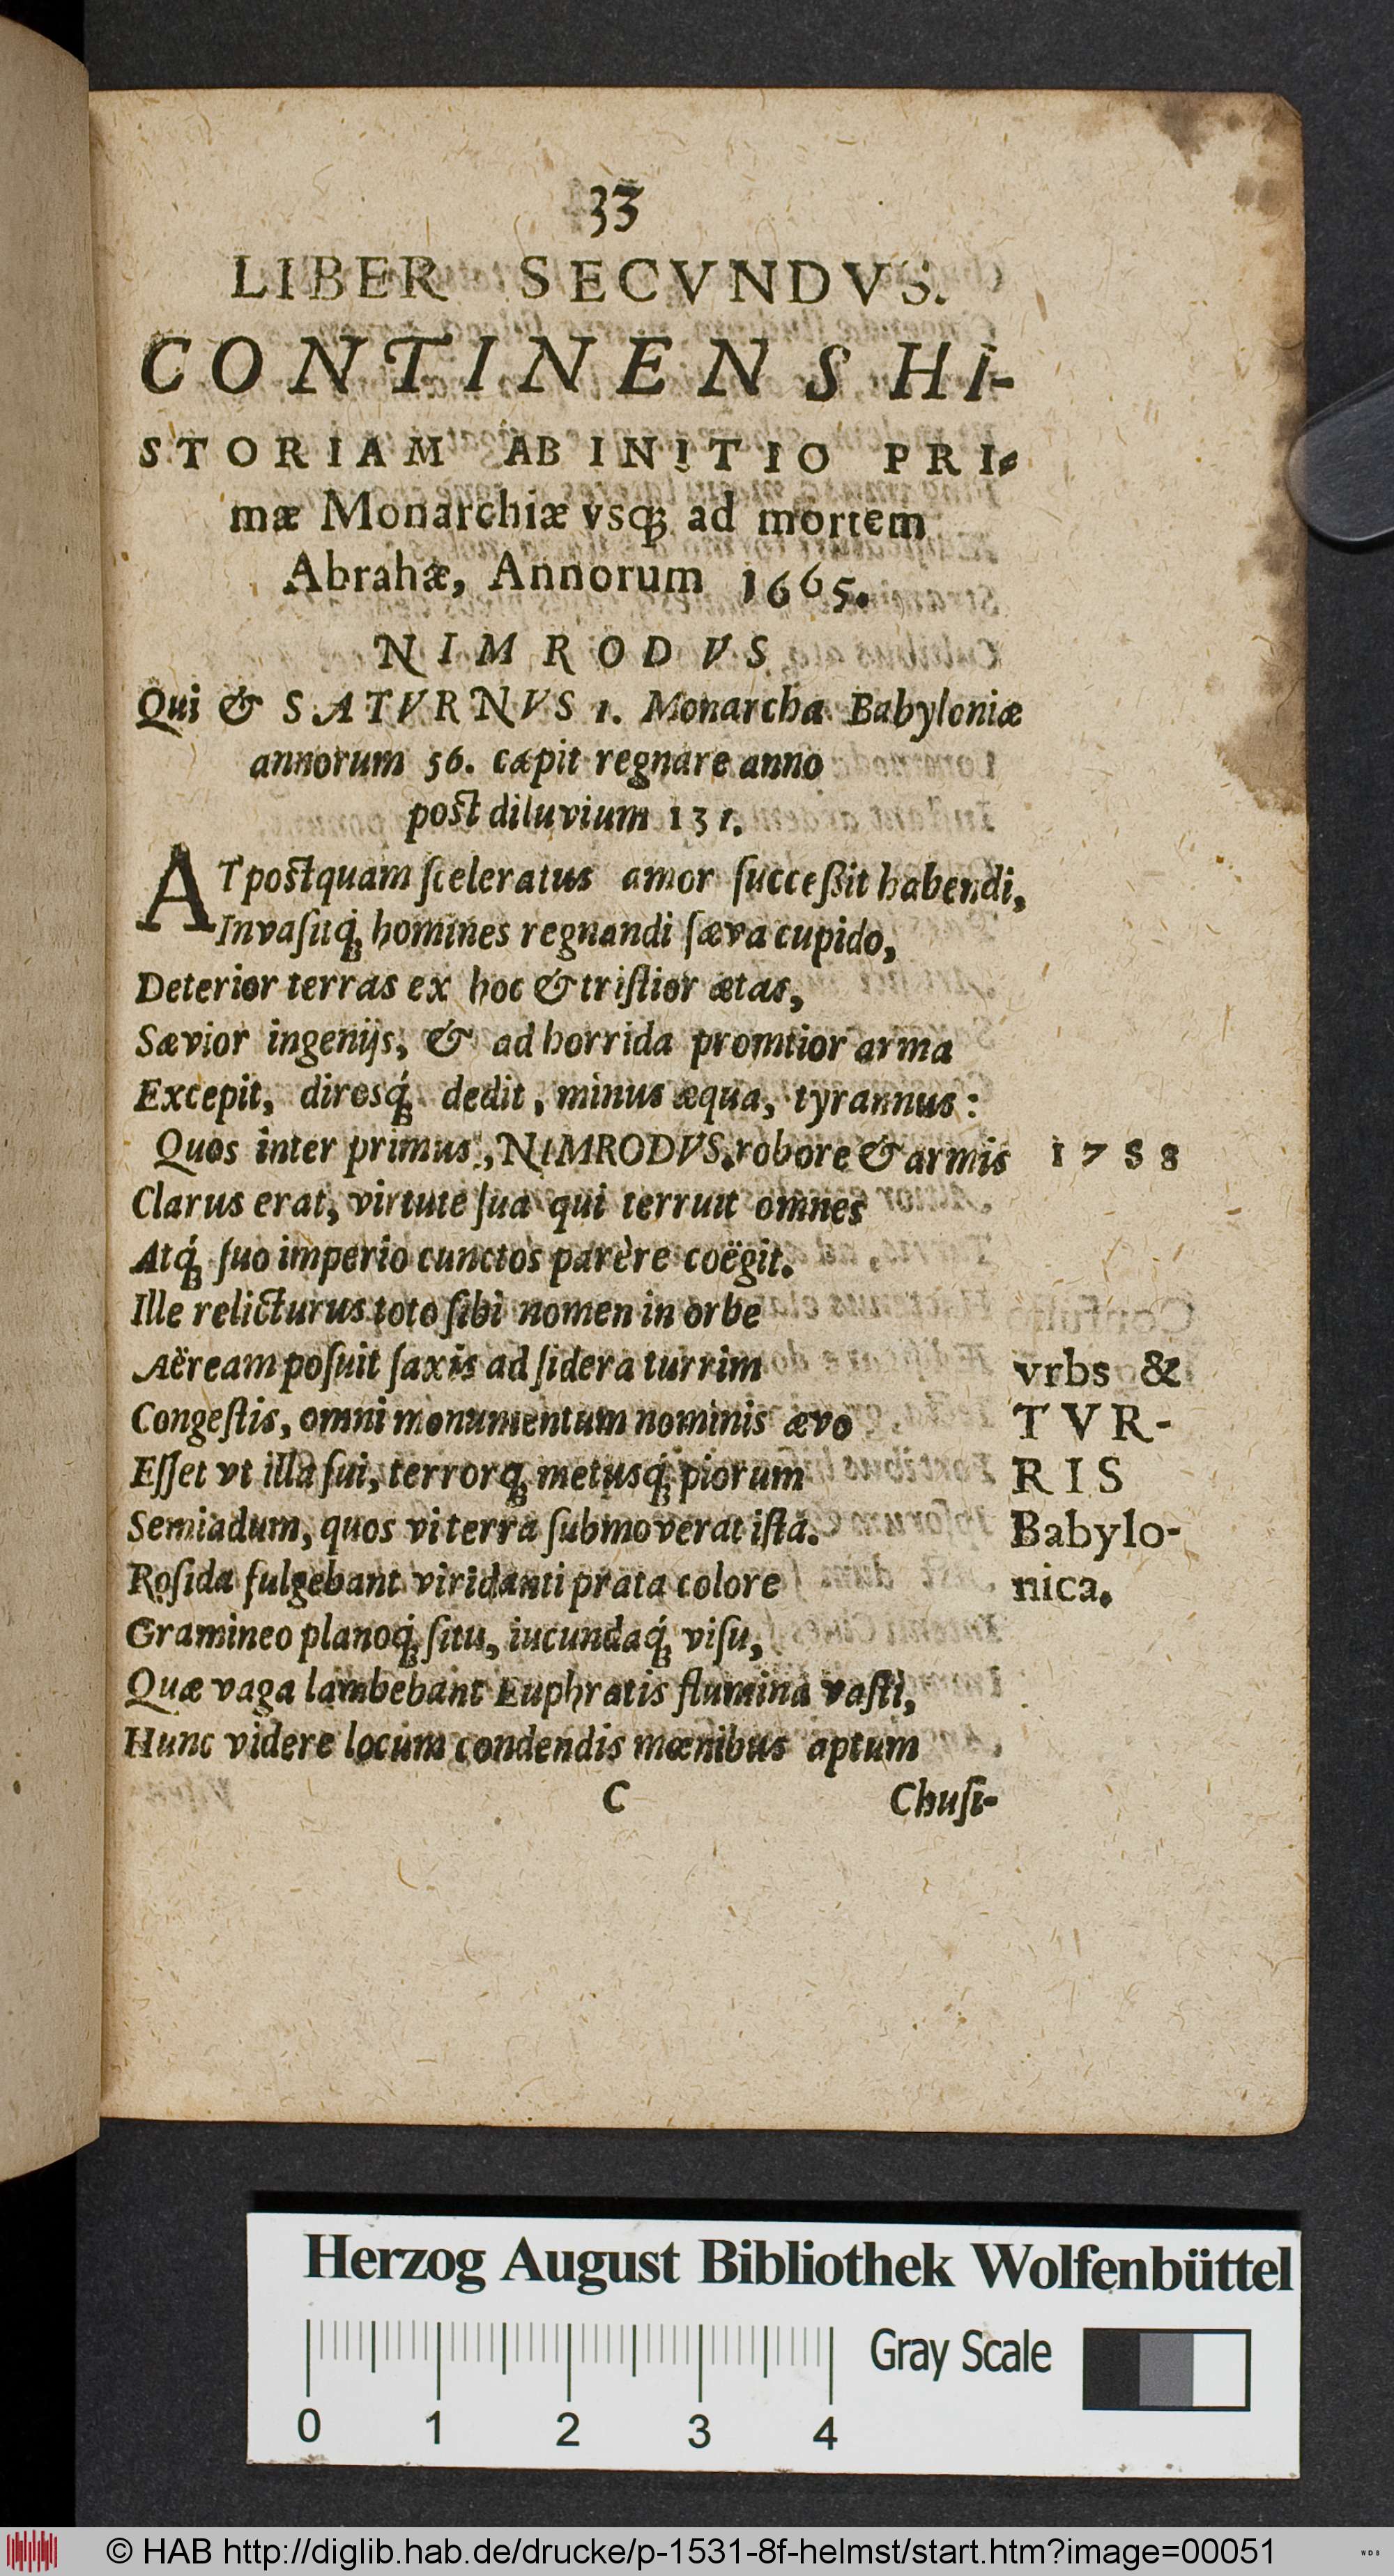 33
LIBER SECVNDVS.
CONTINENS HI-
STORIAM AB INITIO PRI-
mæ Monarchiæ vsq́ꝫ ad mortem
Abrahæ, Annorum 1665.
NIMRODVS
Qui & SATVRNVS 1. Monarcha Babyloniæ
annorum 56. cæpit regnare anno
post diluvium 131.
AT postquam ſceleratus amor ſucceßit habendi,
Invaſitq́ꝫ homines regnandi ſæva cupido,
Deterior terras ex hoc & triſtior ætas,
Sævior ingenijs, & ad horrida promtior arma
Excepit, dirosq́ꝫ dedit, minus æqua, tyrannus:
Quos inter primus, NIMRODVS. robore & armis 1788
Clarus erat, virtute ſua qui terruit omnes
Atq́ꝫ ſuo imperio cunctos parère coëgit.
Ille relicturus toto ſibi nomen in orbe
Aëream poſuit ſaxis ad ſidera turrim vrbs &
Congeſtis, omni monumentum nominis ævo TVR-
Eſſet vt illa ſui, terrorqꝫ metusq́ꝫ piorum RIS
Semiadum, quos vi terra ſubmoverat iſta. Babylo-
Roſida fulgebant viridanti prata colore nica.
Gramineo planoq́ꝫ ſitu, iucundaq́ꝫ viſu,
Quæ vaga lambebant Euphratis flumina vaſti,
Hunc videre locum condendis mœnibus aptum
C Chuſi-
Herzog August Bibliothek Wolfenbüttel
Gray Scale
0 1 2 3 4
© HAB http://diglib.hab.de/drucke/p-1531-8f-helmst/start.htm?image=00051